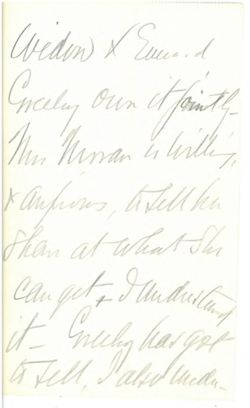 & Edward
Greeley own it jointly -
Mrs is willing,
& anxious, to sell her
share at what she
can get & I understand
it - Greeley has got
to sell, I also under-